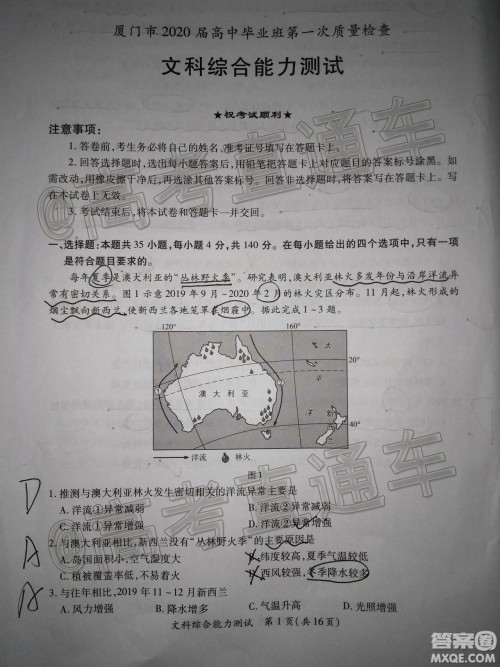 厦门市 2020 届高中毕业班第一次质量检查
文科综合能力测试
★祝考试顺利★
注意事项：
1. 答卷前，考生务必将自己的姓名、准考证号填写在答题卡上。
2. 回答选择题时，选出每小题答案后，用铅笔把答题卡上对应题目的答案标号涂黑。如
需改动，用橡皮擦干净后，再选涂其他答案标号。回答非选择题时，将答案写在答题卡上。写
在本试卷上无效。
3. 考试结束后，将本试卷和答题卡一并交回。
一、选择题：本题共 35 小题，每小题 4 分，共 140 分。在每小题给出的四个选项中，只有一项
是符合题目要求的。
每年夏季是澳大利亚的“丛林野火季”。研究表明，澳大利亚林火多发年份与沿岸洋流异
常有密切关系。图 1 示意 2019 年 9 月～2020 年 2 月的林火灾区分布。11 月起，林火形成的
烟尘飘向新西兰，使新西兰各地笼罩在烟霾中。据此完成 1～3 题。
120° 160°
太
20°
平
澳大利亚
洋
新
西
兰
40°
洋流 林火
图 1
D 1. 推测与澳大利亚林火发生密切相关的洋流异常主要是
A. 洋流①异常减弱 B. 洋流②异常减弱
C. 洋流①异常增强 D. 洋流②异常增强
A 2. 与澳大利亚相比，新西兰没有“丛林野火季”的主要原因是
A. 岛国面积小，空气湿度大 B. 纬度较高，夏季气温较低
C. 植被覆盖率低，不易着火 D. 西风较强，冬季降水较多
A 3. 与往年相比，2019 年 11～12 月新西兰
A. 风力增强 B. 降水增多 C. 气温升高 D. 光照增强
文科综合能力测试 第 1 页（共 16 页）
@高考直通车
@高考直通车
答案圈